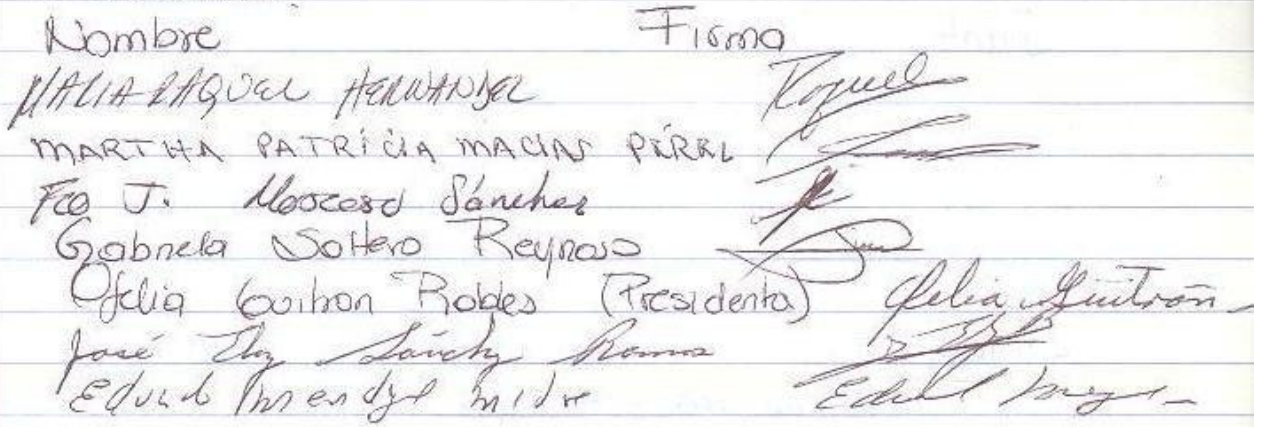 Nombre Firma
MARIA RAQUEL HERNANDEZ Raquel
MARTHA PATRICIA MACIAS PÉREZ
Fco J. Sánchez
Gabriela Soltero Reynoso
Ofelia Guitron Robles (Presidenta) Ofelia Guitrón
José Eloy Sánchez Ramos
Eduardo Mendez